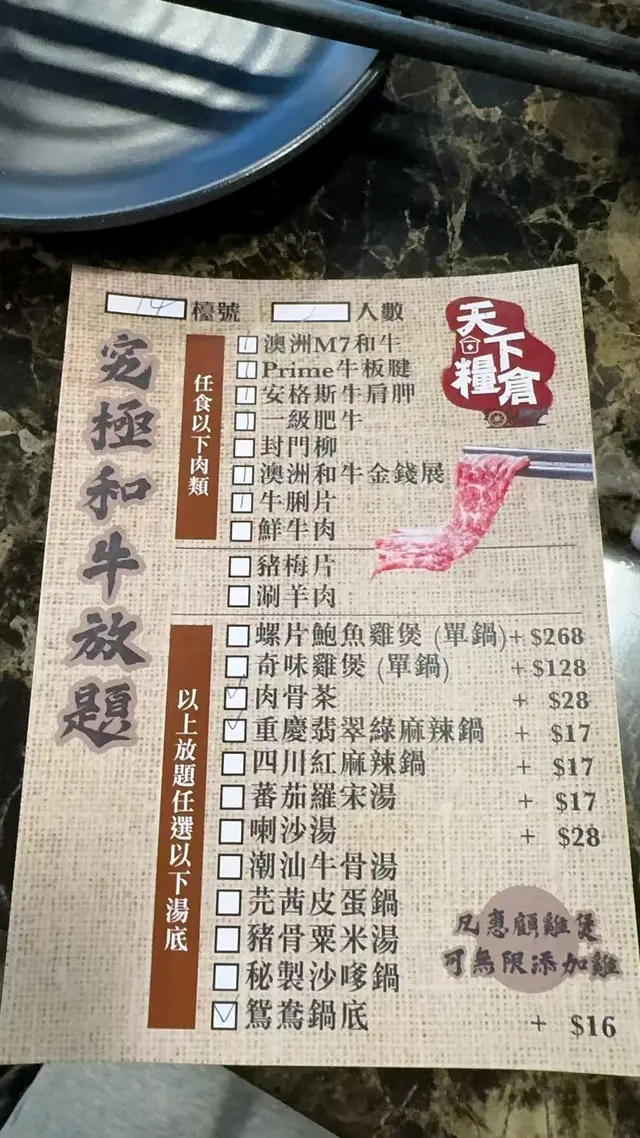 14 檯號 2 人數
天下糧倉
究極和牛放題
任食以下肉類
1 澳洲M7和牛
1 Prime牛板腱
1 安格斯牛肩胛
1 一級肥牛
封門柳
1 澳洲和牛金錢展
1 牛脷片
鮮牛肉
豬梅片
涮羊肉
以上放題任選以下湯底
螺片鮑魚雞煲 (單鍋)+ $268
奇味雞煲 (單鍋) + $128
✓ 肉骨茶 + $28
✓ 重慶翡翠綠麻辣鍋 + $17
四川紅麻辣鍋 + $17
蕃茄羅宋湯 + $17
喇沙湯 + $28
潮汕牛骨湯
芫茜皮蛋鍋
豬骨粟米湯
秘製沙嗲鍋
✓ 鴛鴦鍋底 + $16
凡惠顧雞煲
可無限添加雞